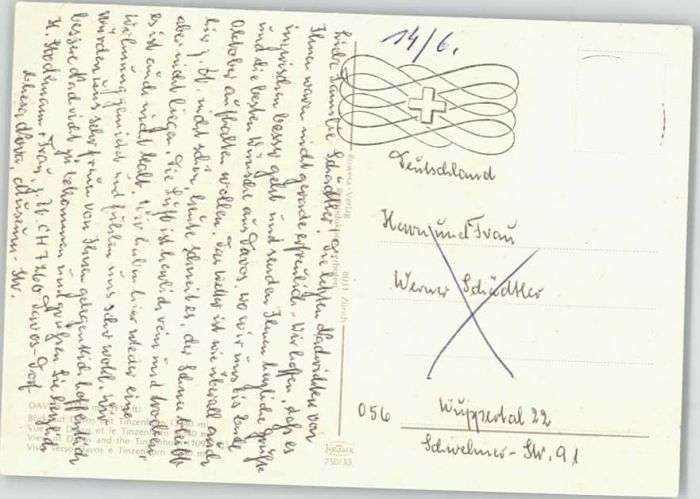 14/6.
Liebe Familie Schädtler! Die letzten Nachrichten von
Ihnen waren nicht gerade erfreulich. Wir hoffen, daß es
inzwischen besser geht und senden Ihnen herzliche Grüße
und die besten Wünsche aus Davos, wo wir uns bis Ende
Oktober aufhalten wollen. Das Wetter ist wie überall auch
hier z. Zt. nicht schön, heute schneit es, der Schnee bleibt
aber nicht liegen. Die Luft ist herrlich rein und trocken
es ist auch nicht kalt. Wir haben hier wieder eine
Wohnung gemietet und fühlen uns sehr wohl. Wir
würden uns sehr freuen von Ihnen gelegentlich hoffentlich
bessere Nachricht zu bekommen und grüßen Sie herzlich
H. und Frau, z. Zt. CH 7260 Davos-Dorf
Chesa Museum-Str.
Deutschland
Herrn und Frau
Werner Schädtler
056 Wuppertal 22
Schwelmer-Str. 91
8011 Zürich
DAVOS
750/33